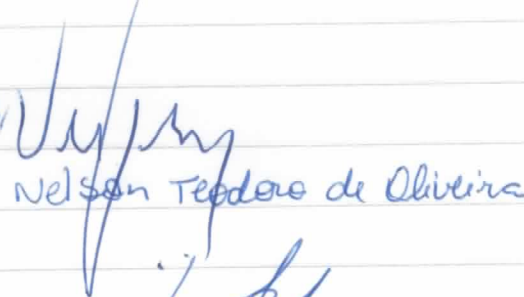 Nelson Teodoro de Oliveira